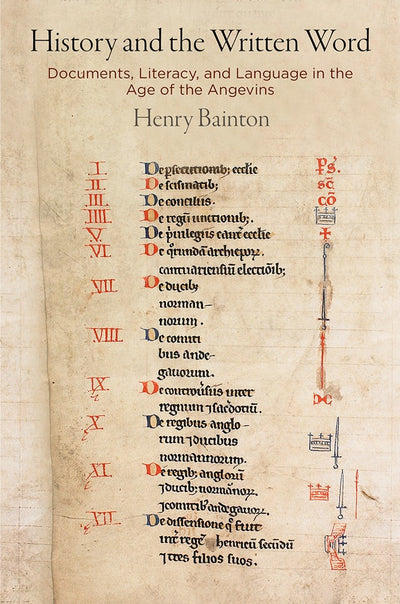 History and the Written Word
Documents, Literacy, and Language in the
Age of the Angevins
Henry Bainton
I. De ꝑsecutionib; ecclie p̄s̄.
II. De scismatib; sc̄
III. De conciliis. cō
IIII. De regū unctionib;.
V. De p̓uilegiis cant̄ ecclie
VI. De q̓rundā archiepoꝝ.
cantuariensiū electiōib;
VII. De ducib;
norman–
norum.
VIII. De comiti
bus ande-
gauorum.
IX. De controuersiis inter
regnum ⁊ sacerdotiū.
X. De regibus anglo–
rum ⁊ ducibus
normannorum.
XI. De regib; anglorū
⁊ ducib; normānoꝝ.
⁊ comitib; andegauoꝝ.
XII. De dissensione q̄ fuit
int̄ regē henricū secūdū
⁊ tres filios suos.